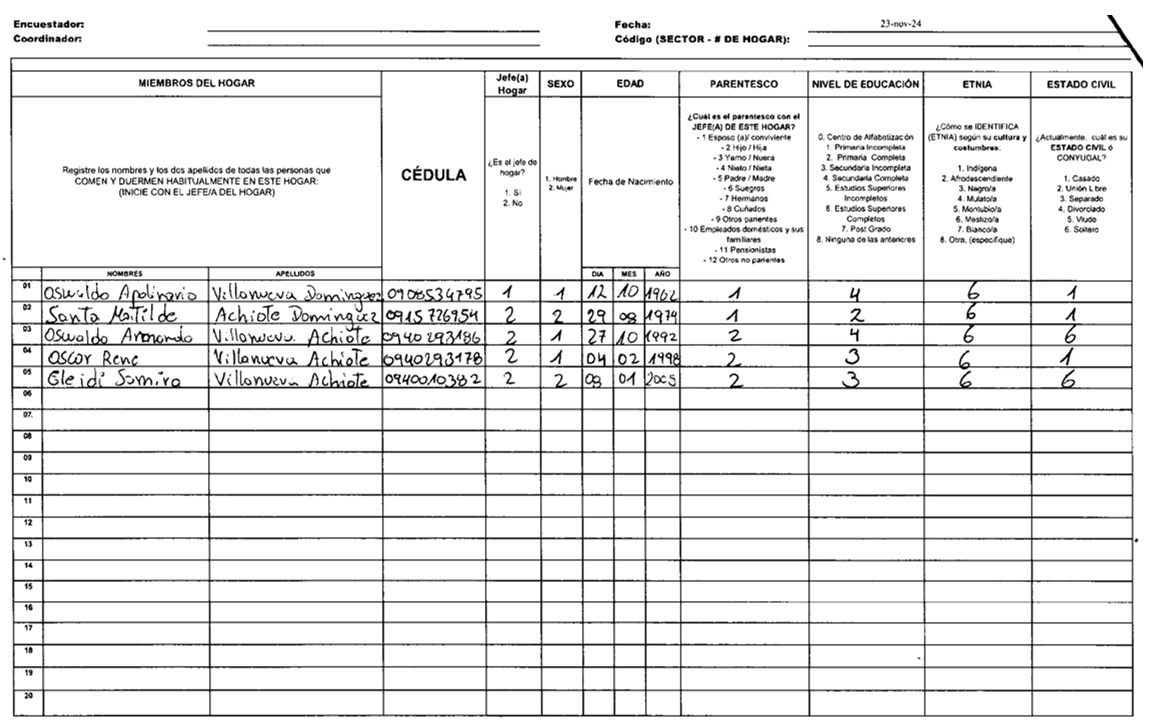 Encuestador:
Fecha: 23-nov-24
Coordinador:
Código (SECTOR - # DE HOGAR):
MIEMBROS DEL HOGAR
CÉDULA
Jefe(a)
Hogar
SEXO
EDAD
PARENTESCO
NIVEL DE EDUCACIÓN
ETNIA
ESTADO CIVIL
Registre los nombres y los dos apellidos de todas las personas que
COMEN Y DUERMEN HABITUALMENTE EN ESTE HOGAR:
(INICIE CON EL JEFE/A DEL HOGAR)
¿Es el jefe de
hogar?
1. Si
2. No
1. Hombre
2. Mujer
Fecha de Nacimiento
¿Cuál es el parentesco con el
JEFE(A) DE ESTE HOGAR?
- 1 Esposo (a)/ conviviente
- 2 Hijo / Hija
- 3 Yerno / Nuera
- 4 Nieto / Nieta
- 5 Padre / Madre
- 6 Suegros
- 7 Hermanos
- 8 Cuñados
- 9 Otros parientes
- 10 Empleados domésticos y sus
familiares
- 11 Pensionistas
- 12 Otros no parientes
0. Centro de Alfabatización
1. Primaria Incompleta
2. Primaria Completa
3. Secundaria Incompleta
4. Secundaria Completa
5. Estudios Superiores
Incompletos
6. Estudios Superiores
Completos
7. Post Grado
8. Ninguna de las anteriores
¿Cómo se IDENTIFICA
(ETNIA) según su cultura y
costumbres.
1. Indígena
2. Afrodescendiente
3. Negro/a
4. Mulato/a
5. Montubio/a
6. Mestizo/a
7. Blanco/a
8. Otra, (especifique)
¿Actualmente, cuál es su
ESTADO CIVIL ó
CONYUGAL?
1. Casado
2. Unión Libre
3. Separado
4. Divorciado
5. Viudo
6. Soltero
NOMBRES APELLIDOS DIA MES AÑO
01 Oswaldo Apolinario Villanueva Dominguez 0908534795 1 1 12 10 1962 1 4 6 1
02 Santa Matilde Achiote Dominguez 0915726954 2 2 29 08 1974 1 2 6 1
03 Oswaldo Armando Villanueva Achiote 0940293186 2 1 27 10 1992 2 4 6 6
04 Oscar Rene Villanueva Achiote 0940293178 2 1 04 02 1998 2 3 6 1
05 Gleidi Samira Villanueva Achiote 0940010382 2 2 08 01 2005 2 3 6 6
06
07.
08
09
10
11
12
13
14
15
16
17
18
19
20